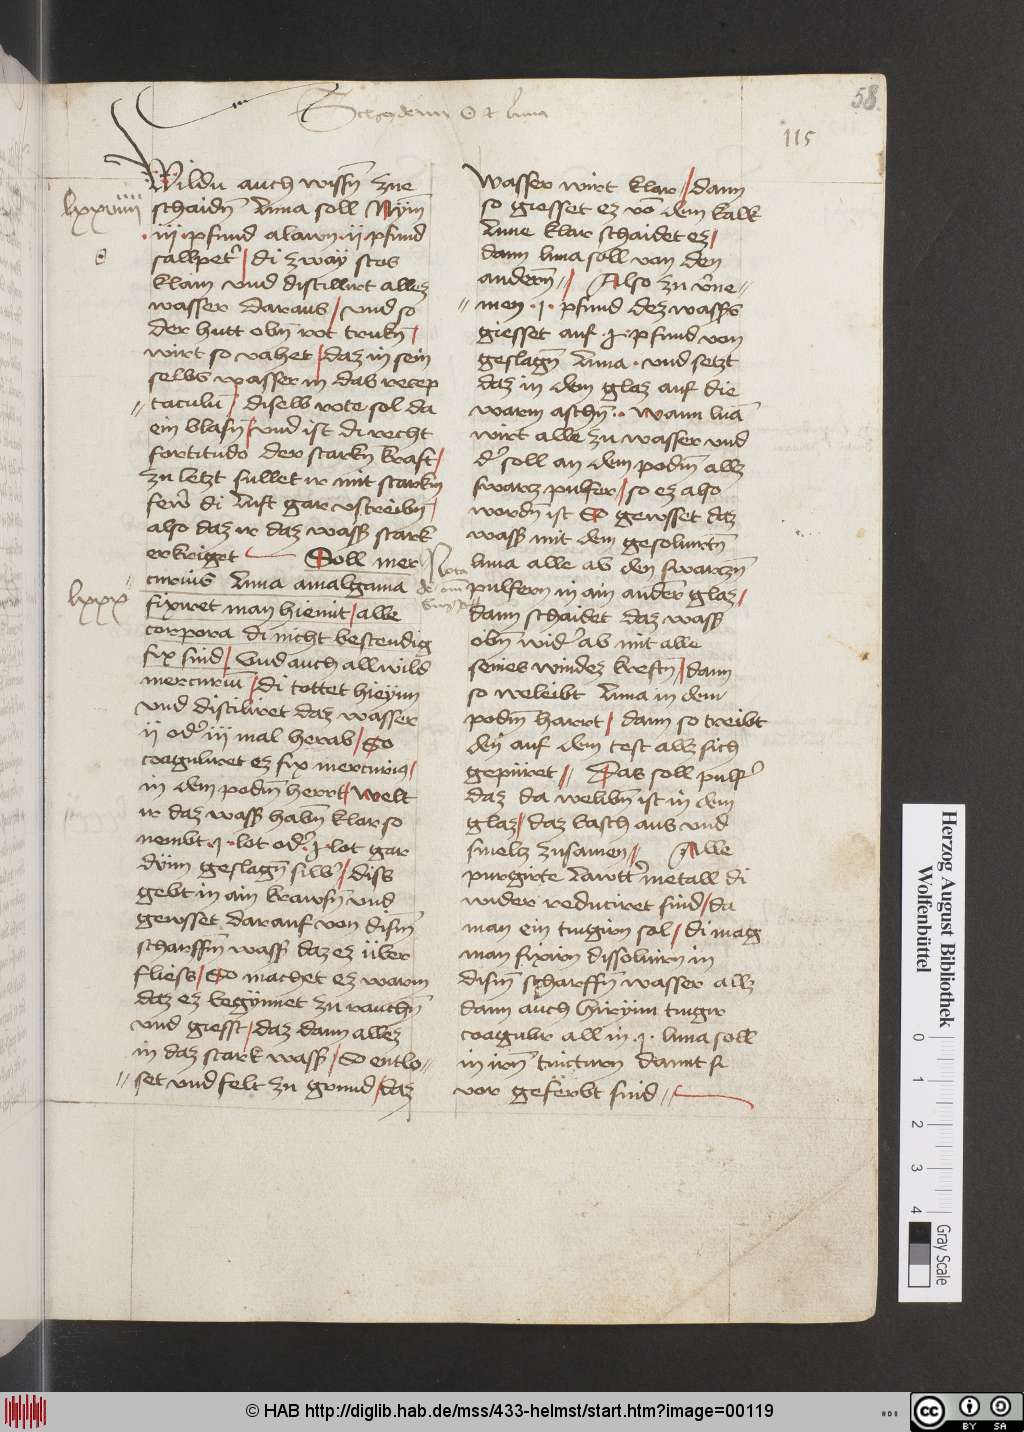 58
Scheydenn ☉ et luna
115
Wildu auch wissñ zue
lxxviiii
schaidñ luna soll Nym
·iij· pfund alawn ·ij· pfund
sallpetˀ / di zway stos
klain vnd distillirt allez
wasser daraus / vnd so
der hutt obñ rot trukñ /
wirt so vahet / daz in sein
selbs wasser in das recep
taculũ / diselb rote sol da
ein blasñ / vnd ist di recht
fortitudo der starkñ kraft /
zu letzt fullet ir mit starkñ
fewr di luft gar vstreibñ /
also daz ir daz wasß stark
erkriget Soll mer
curius luna amalgama
lxxx
fixiret man hiemit / alle
corpora di nicht bestendig
fix sind / Vnd auch all wild
mercuriũ / di tottet hieyim
vnd distiliret daz wasser
ij odˀ iij mal herab / So
coaguliret ez fix mercurius /
in dem podñ herrt / welt
ir daz wasß habñ klar so
nembt ·j· lot odˀ ·j· lot gar
dünn geslagñ silbˀ / diss
gebt in ain krausñ vnd
geusset darauf von disem
scharffñ wasß daz ez über
fliess / So machet ez warm
daz ez begynnet zu rauchñ
vnd giesst / daz dann allez
in daz stark wasß / So entlo-
set vnd felt zu grund / daz
wasser wirt klar / dann
so giesset ez võ dem kalk
lune klar schaidet ez /
dann luna soll von den
anderñ // Also zu v̊ne-
men ·j· pfund dez wassˀs
giesset auf ·j· pfund von
geslagñ luna · vnd setzt
daz in dem glaz auf die
warm aschñ ·· wann luã
wirt alle zu wasser vnd
dˀ soll an dem podñ allz
swarz pulfer / so ez also
wordñ ist So geusset daz
wasß mit dem gesoluirtñ
luna alle ab den swarzñ
pulfern in ain ander glaz /
dann schaidet daz wasß
obñ widˀ ab mit alle
seines windez kreftñ / dann
so beleibt luna in dem
podñ harrt / dann so treibt
den auf dem test allz sich
gepüret // Das soll pulfˀ
daz da belibñ ist in dem
glaz / daz wasch aus vnd
smelz zusamen // Alle
purgirte lawttˀ metall di
wider reduciret sind / da
man ein tingirn sol / di mag
man fixirn dissoluirn in
disem scharffñ wasser allz
dann auch hirynn tingir
coagulir all in ·j· luna soll
in irñ tincturn damit si
vor geferbt sind //
Herzog August Bibliothek
Wolfenbüttel
0 1 2 3 4
Gray Scale
© HAB http://diglib.hab.de/mss/433-helmst/start.htm?image=00119
cc BY SA